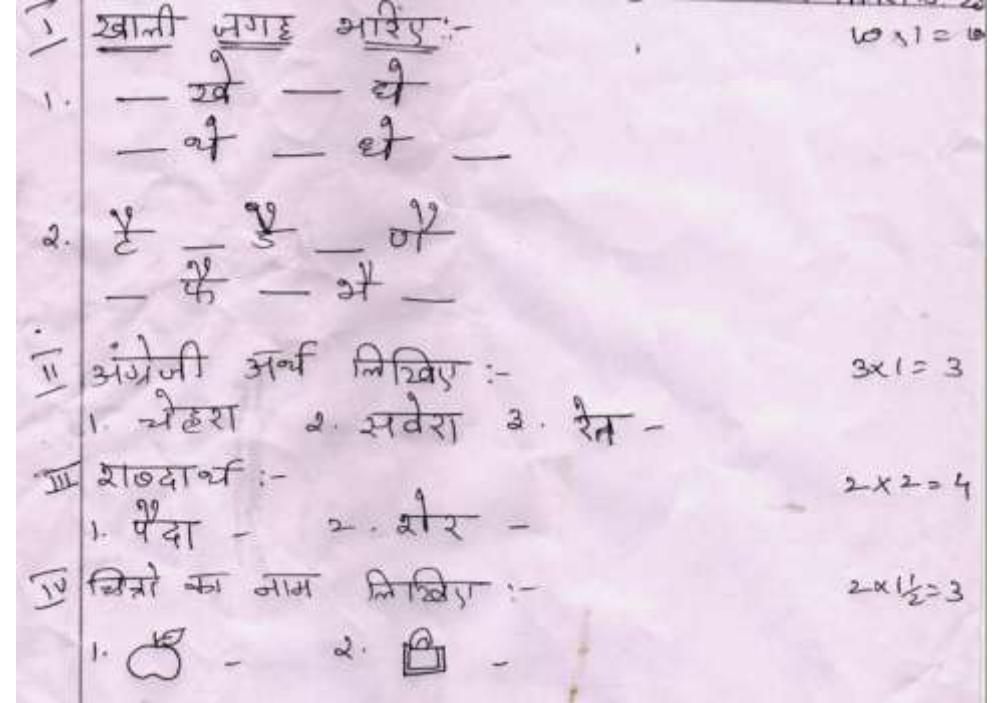 I खाली जगह भरिए:-
1. — खे — घे
— थे — धे —
2. टै — डै — णै
— फै — भै —
II अंग्रेजी अर्थ लिखिए :- 3x1= 3
1. चेहरा २. सवेरा ३. रेत -
III शब्दार्थ :- 2x2=4
1. पैदा - 2. शेर -
IV चित्रो का नाम लिखिए :- 2x1½=3
1. - २. -